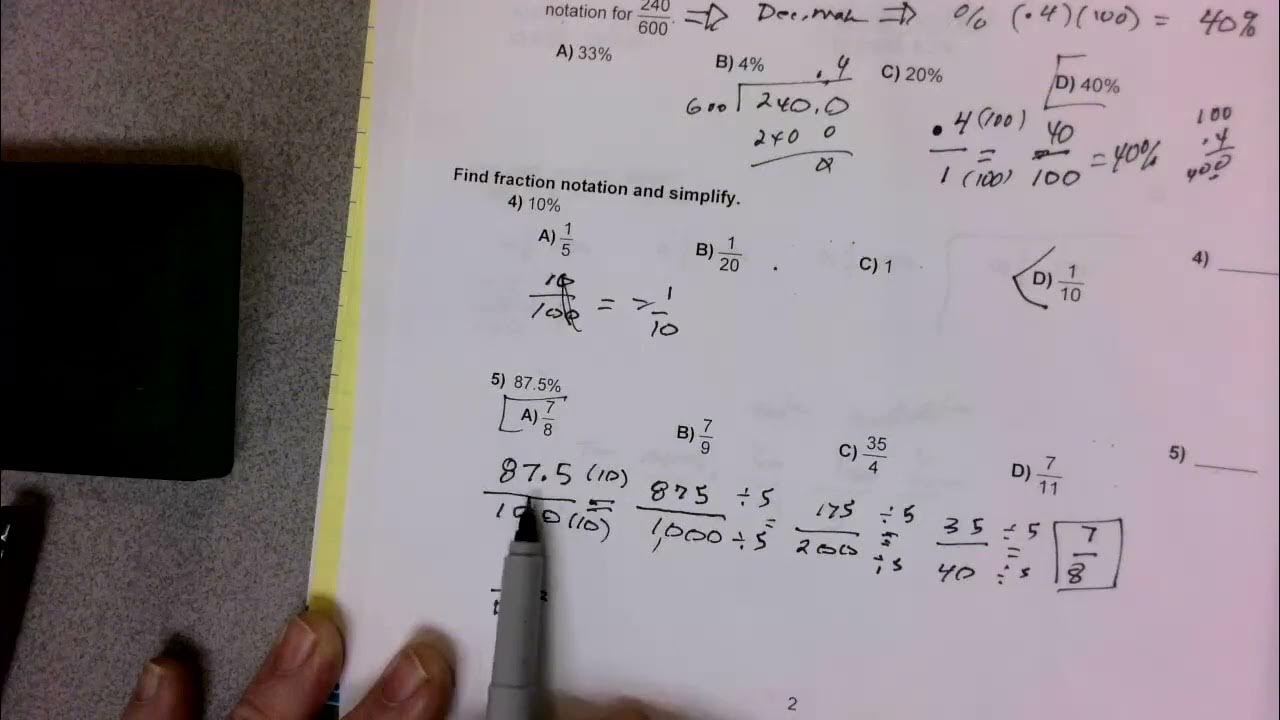 notation for 240/600. ⇒ Decimal ⇒ % (.4)(100) = 40%
A) 33%
B) 4%
C) 20%
D) 40%
.4
600 240.0
240 0
0
.4(100)/1(100) = 40/100 = 40%
100
.4
400
Find fraction notation and simplify.
4) 10%
A) 1/5
B) 1/20
C) 1
D) 1/10
4)
10/100 = > 1/10
5) 87.5%
A) 7/8
B) 7/9
C) 35/4
D) 7/11
5)
87.5(10)/100(10) = 875÷5/1,000÷5 = 175÷5/200÷5 = 35÷5/40÷5 = 7/8
2